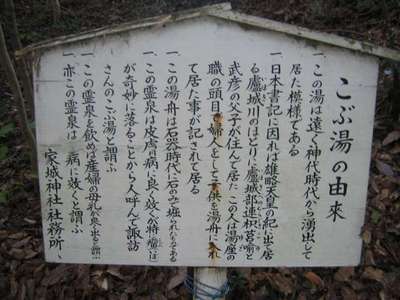 こぶ湯の由来
一 この湯は遠く神代時代から湧出して
居た模様である
一 日本書記に因れば雄略天皇の紀に出て居
る廬城川のほとりに廬城部連枳莒喩と
武彦の父子が住んで居たこの人は湯座の
職の頭目で婦人をして子供を湯舟に入れ
て居た事が記されて居る
一 この湯舟は石器時代に石のみで堀られたものである
一 この霊泉は皮膚病に良く效く殊に瘤には
が奇妙に落ることから人呼んで諏訪
さんのこぶ湯と謂ふ
一 この霊泉を飲めば産婦の母乳が良く出ると謂ふ
一 亦この霊泉は 病に效くと謂ふ
家城神社社務所